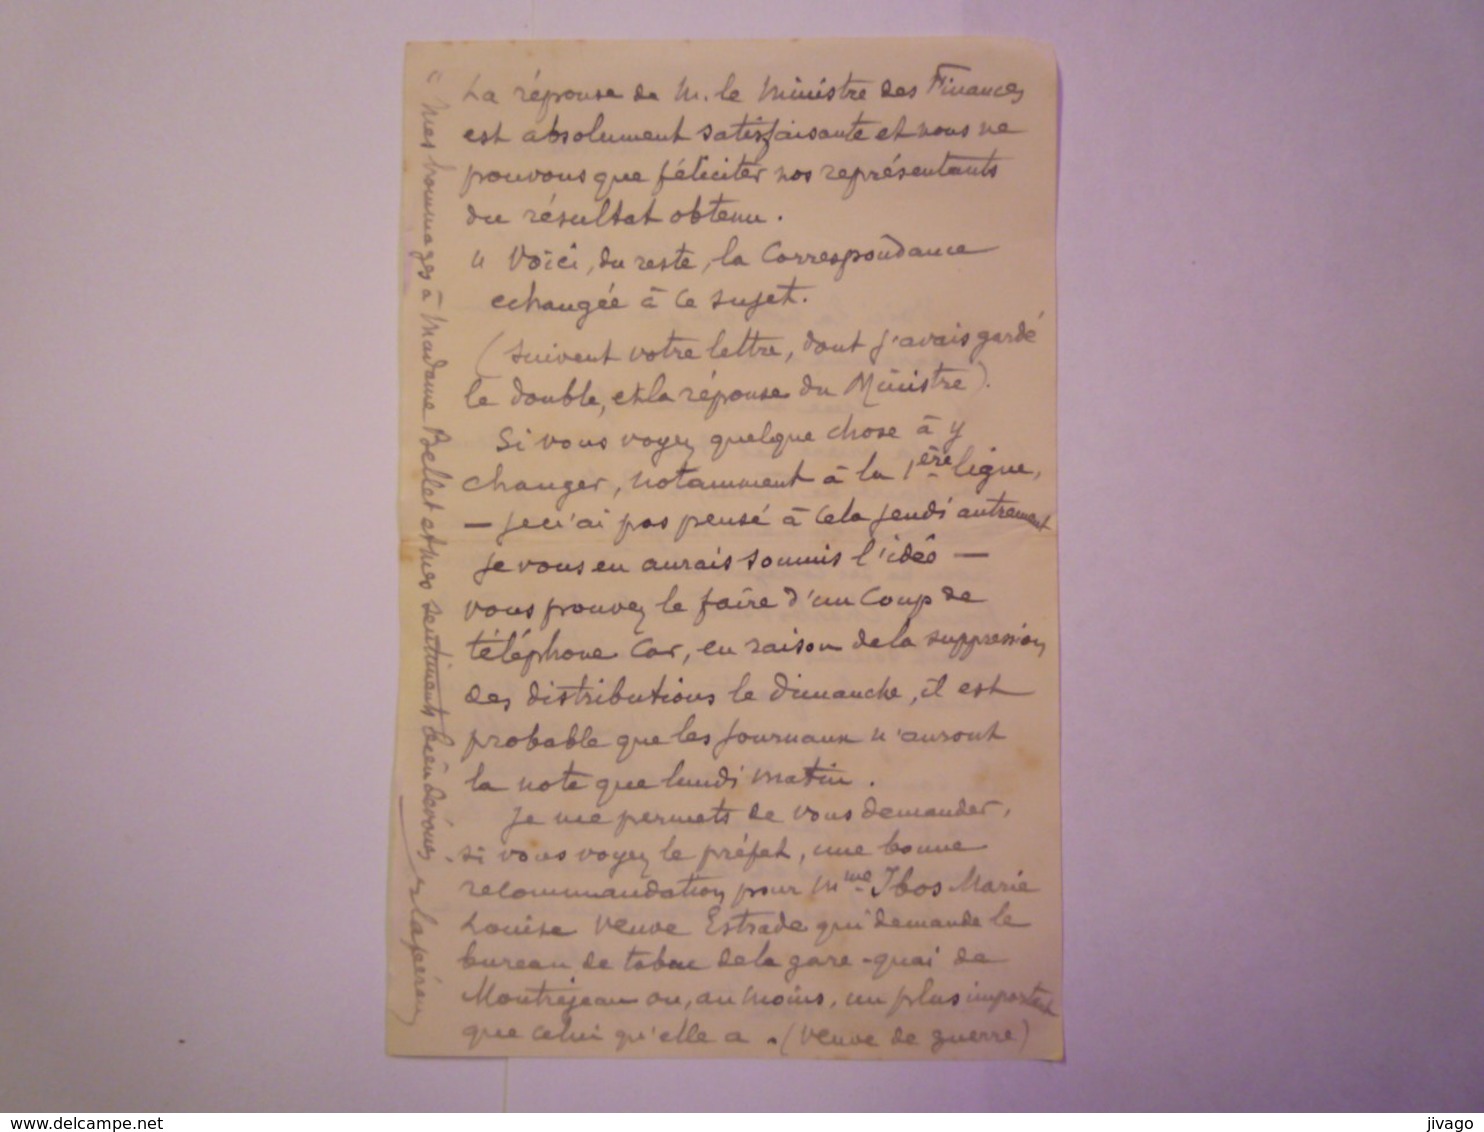 La réponse de M. le Ministre des Finances
est absolument satisfaisante et nous ne
pouvons que féliciter nos représentants
du résultat obtenu.
" Voici, du reste, la Correspondance
echangée à ce sujet.
(suivent votre lettre, dont j'avais gardé
le double, et la réponse du Ministre).
Si vous voyez quelque chose à y
changer, notamment à la 1ère ligne,
— je n'ai pas pensé à cela jeudi autrement
je vous en aurais soumis l'idée —
vous pouvez le faire d'un coup de
téléphone car, en raison de la suppression
des distributions le dimanche, il est
probable que les journaux n'auront
la note que lundi matin.
Je me permets de vous demander,
si vous voyez le préfet, une bonne
recommandation pour Mme Ibos Marie
Louise veuve Estrade qui demande le
bureau de tabac de la gare-quai de
Montréjeau ou, au moins, un plus important
que celui qu'elle a. (veuve de guerre)
" Mes hommages à Madame Bellet et mes sentiments bien dévoués
delcampe.net
jivago